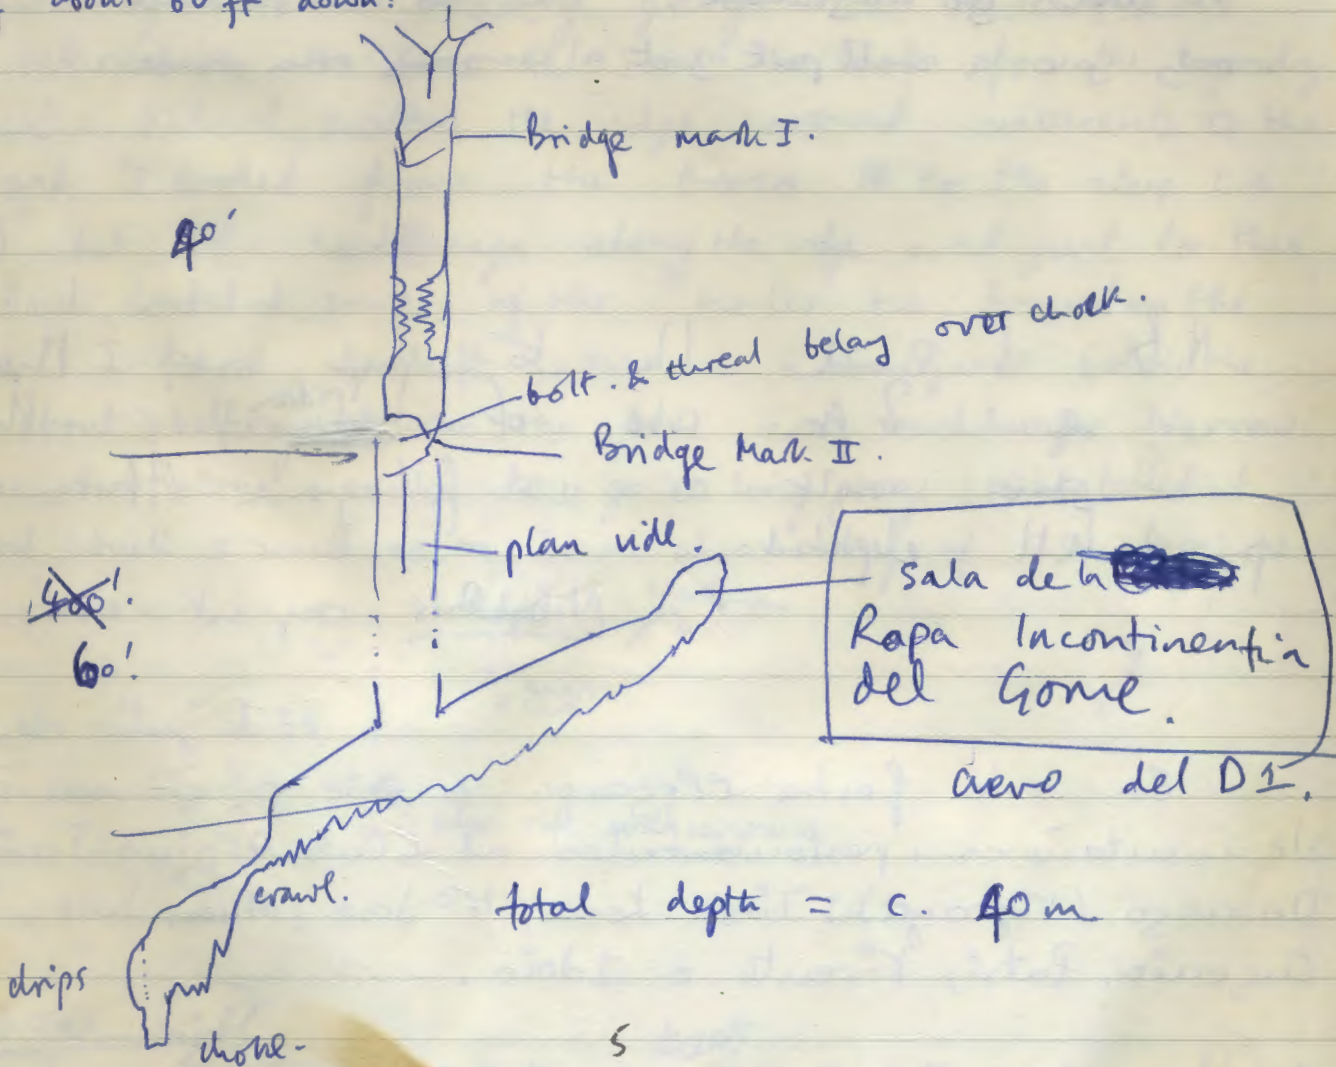 about 60 ft down.
Bridge mark I.
40'
bolt. & thread belay over chock.
Bridge Mark II.
plan view.
60'!
Sala de la
Ropa Incontinentia
del Gome.
cuevo del D1.
crawl.
total depth = c. 40m
drips
choke.
5